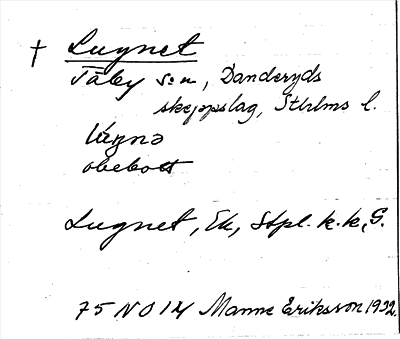 † Lugnet
Täby sn, Danderyds
skeppslag, Sthlms l.
obebott
Lugnet, Ek, Stpl. k.k, G.
75 NO 14 Manne Eriksson 1932.